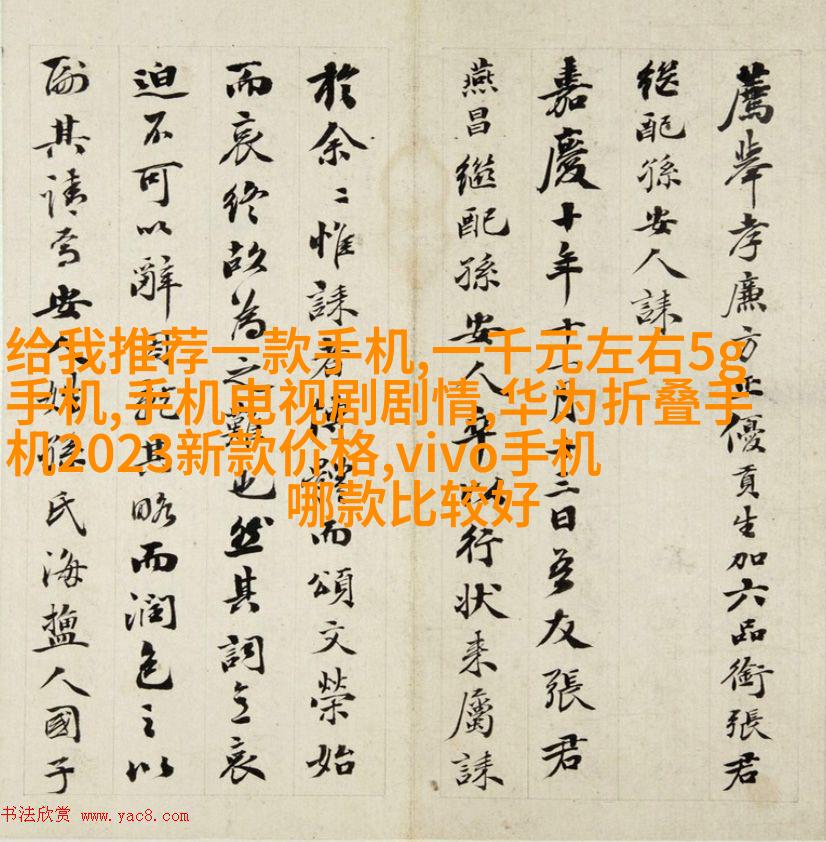 薦舉孝廉方正優貢生加六品銜張君
継配孫安人誄
嘉慶十年十一月十二日吾友張君
燕昌継配孫安人卒以行状来屬誄
於余〻惟誄者而頌文榮始
而哀終故為之難也然其詞主哀
迫不可以辭其略而潤色之以
副其請焉安人姓孫氏海鹽人國子
给我推荐一款手机,一千元左右5g
手机,手机电视剧剧情,华为折叠手
机2023新款价格,vivo手机
哪款比较好
书法欣赏 www.yac8.com